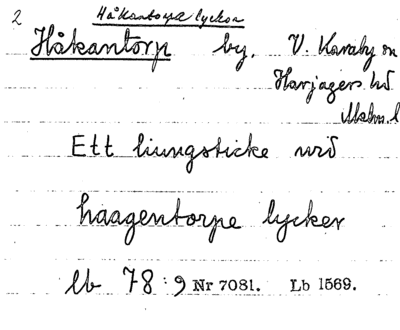 2 Håkantorpa lyckor
Håkantorp by. V. Karaby sn
Harjagers hd
Malm. l
Ett liungsticke wid
haagentorpe lycker
lb 78:9 Nr 7081. Lb 1569.